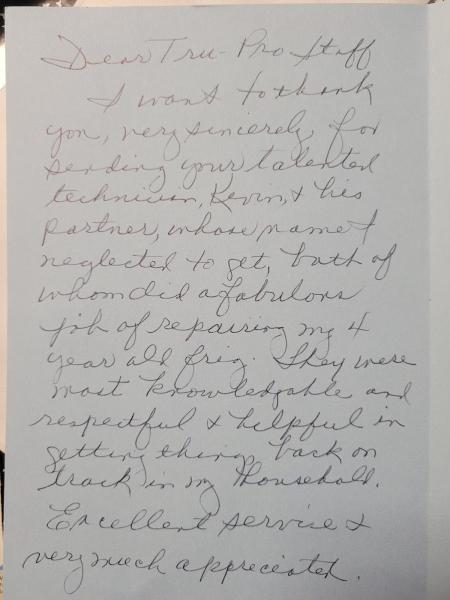 Dear Tru-Pro Staff
I want to thank
you, very sincerely, for
sending your talented
technician, Kevin, & his
partner, whose name I
neglected to get, both of
whom did a fabulous
job of repairing my 4
year old frig. They were
most knowledgable and
respectful & helpful in
getting things back on
track in my household.
Excellent service &
very much appreciated.